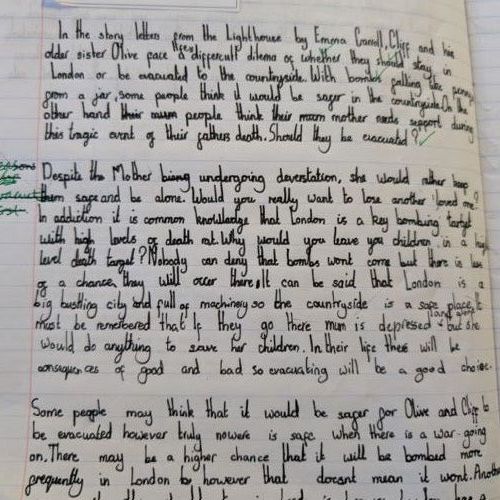 In the story letters from the Lighthouse by Emma Carroll, Cliff and his
older sister Olive face a differcult dilema of whether they should stay in
London or be evacuated to the countryside. With bombs falling like pennys
from a jar, some people think it would be safer in the countryside. On the
other hand their people think their mother needs support during
this tragic event of their fathers death. Should they be evacuated?
Despite the Mother biеng undergoing deverstation, she would rather keep
them safe and be alone. Would you really want to lose another loved one?
In addiction it is common knowladge that London is a key bombing target
with high levels of death rat. Why would you leave you children in a high
level death target? Nobody can deny that bombs wont come but there is less
of a chance they will occer there. It can be said that London is a
big bustling city and full of machinery so the countryside is a safe place. It
must be remembered that if they go there mum is depressed and alone but she
would do anything to save her children. In their life thees will be
consequences of good and bad so evacuating will be a good choice.
Some people may think that it would be safer for Olive and Cliff to
be evacuated however truly nowere is safe when there is a war going
on. There may be a higher chance that it will be bombed more
frequently in London to however that doesnt mean it wont. Another